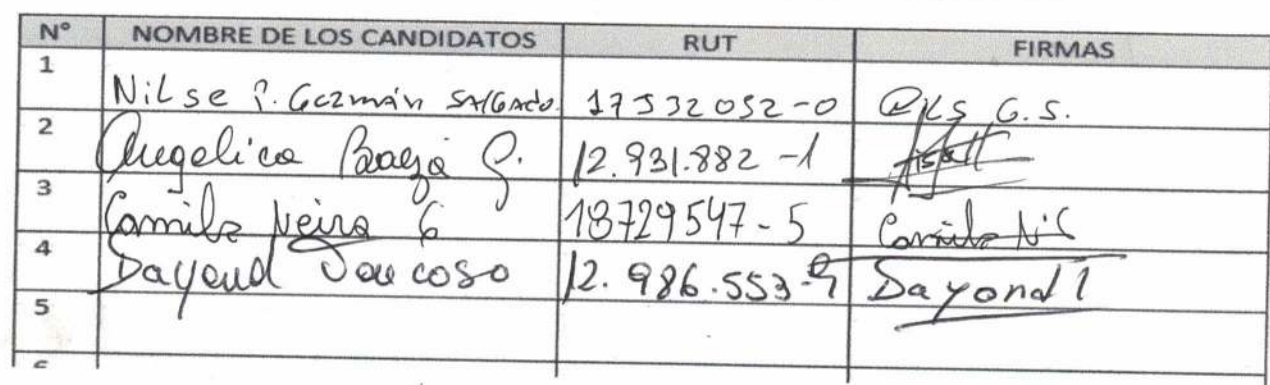 N° NOMBRE DE LOS CANDIDATOS RUT FIRMAS
1 Nilse P. Guzmán SAlGAdo. 17532052-0 G.S.
2 Angelica G. 12.931.882-1
3 Camila Neira G 18729547-5 Camila N G
4 Dayond 12.986.553-9 Dayond
5
6